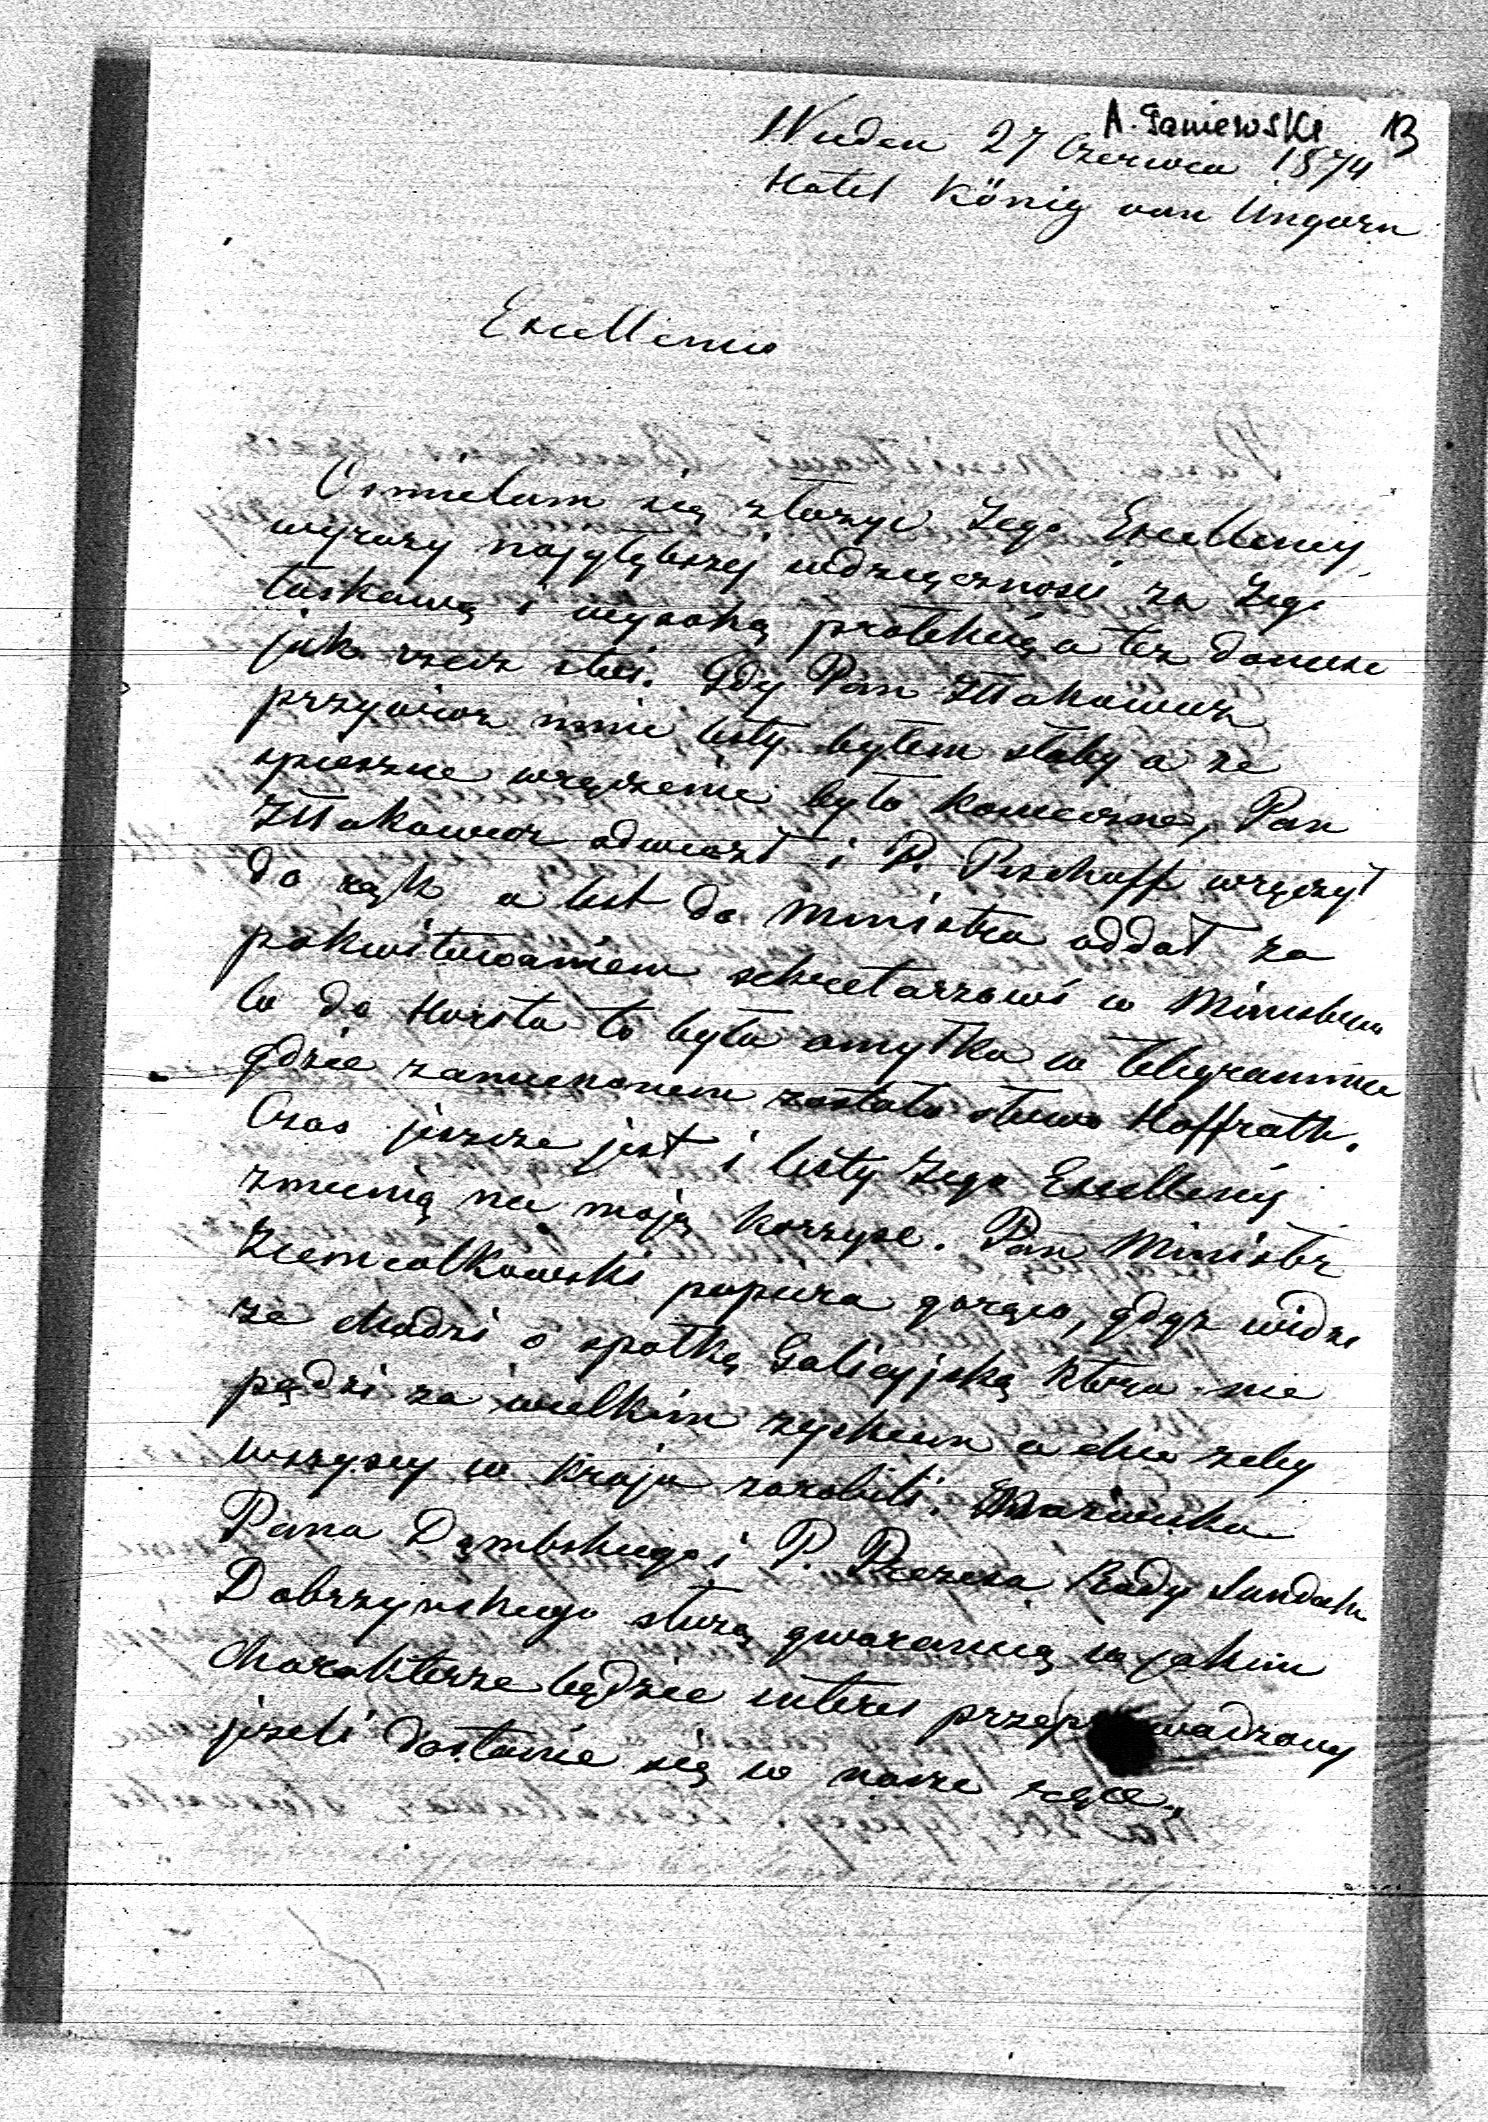 A. Janiewski 13
Wieden 27 Czerwca 1874
Hotel König von Ungarn
Excellencio
Osmielam się złożyc Jego Excellency
wyrazy najgłębszej wdzięcznosci za Jego
łaskawą i wysoką protekcią a też doniese
jak rzecz stoi. Gdy Pan
przywiozł mnie listy byłem słaby a że
spieszne wręczenie było konieczne, Pan
odwiozł i P. Peschoff wręczył
do rąk a list do Ministra oddał za
pokwitowaniem sekretarzowi w Ministeriu
co do Horsta to była omyłka w telegramie
gdzie zamienionem zostało słowo Hoffrath.
Czas jeszcze jest i listy Jego Excellencij
zmienią na moją korzysc. Pan Ministr
Ziemialkowski popiera gorąco, gdyż widzi
że chodzi o społką Galicyjską ktora nie
pędzi za wielkim zyskiem a chce zeby
wszyscy w kraju zarobili. Nazwiska
Pana Dąmbskiego i P. Prezesa Rady Sandeck
Dobrzynskiego służą gwarancią w jakim
charakterze będzie interes przeprowadzony
jezeli dostanie się w nasze ręce.